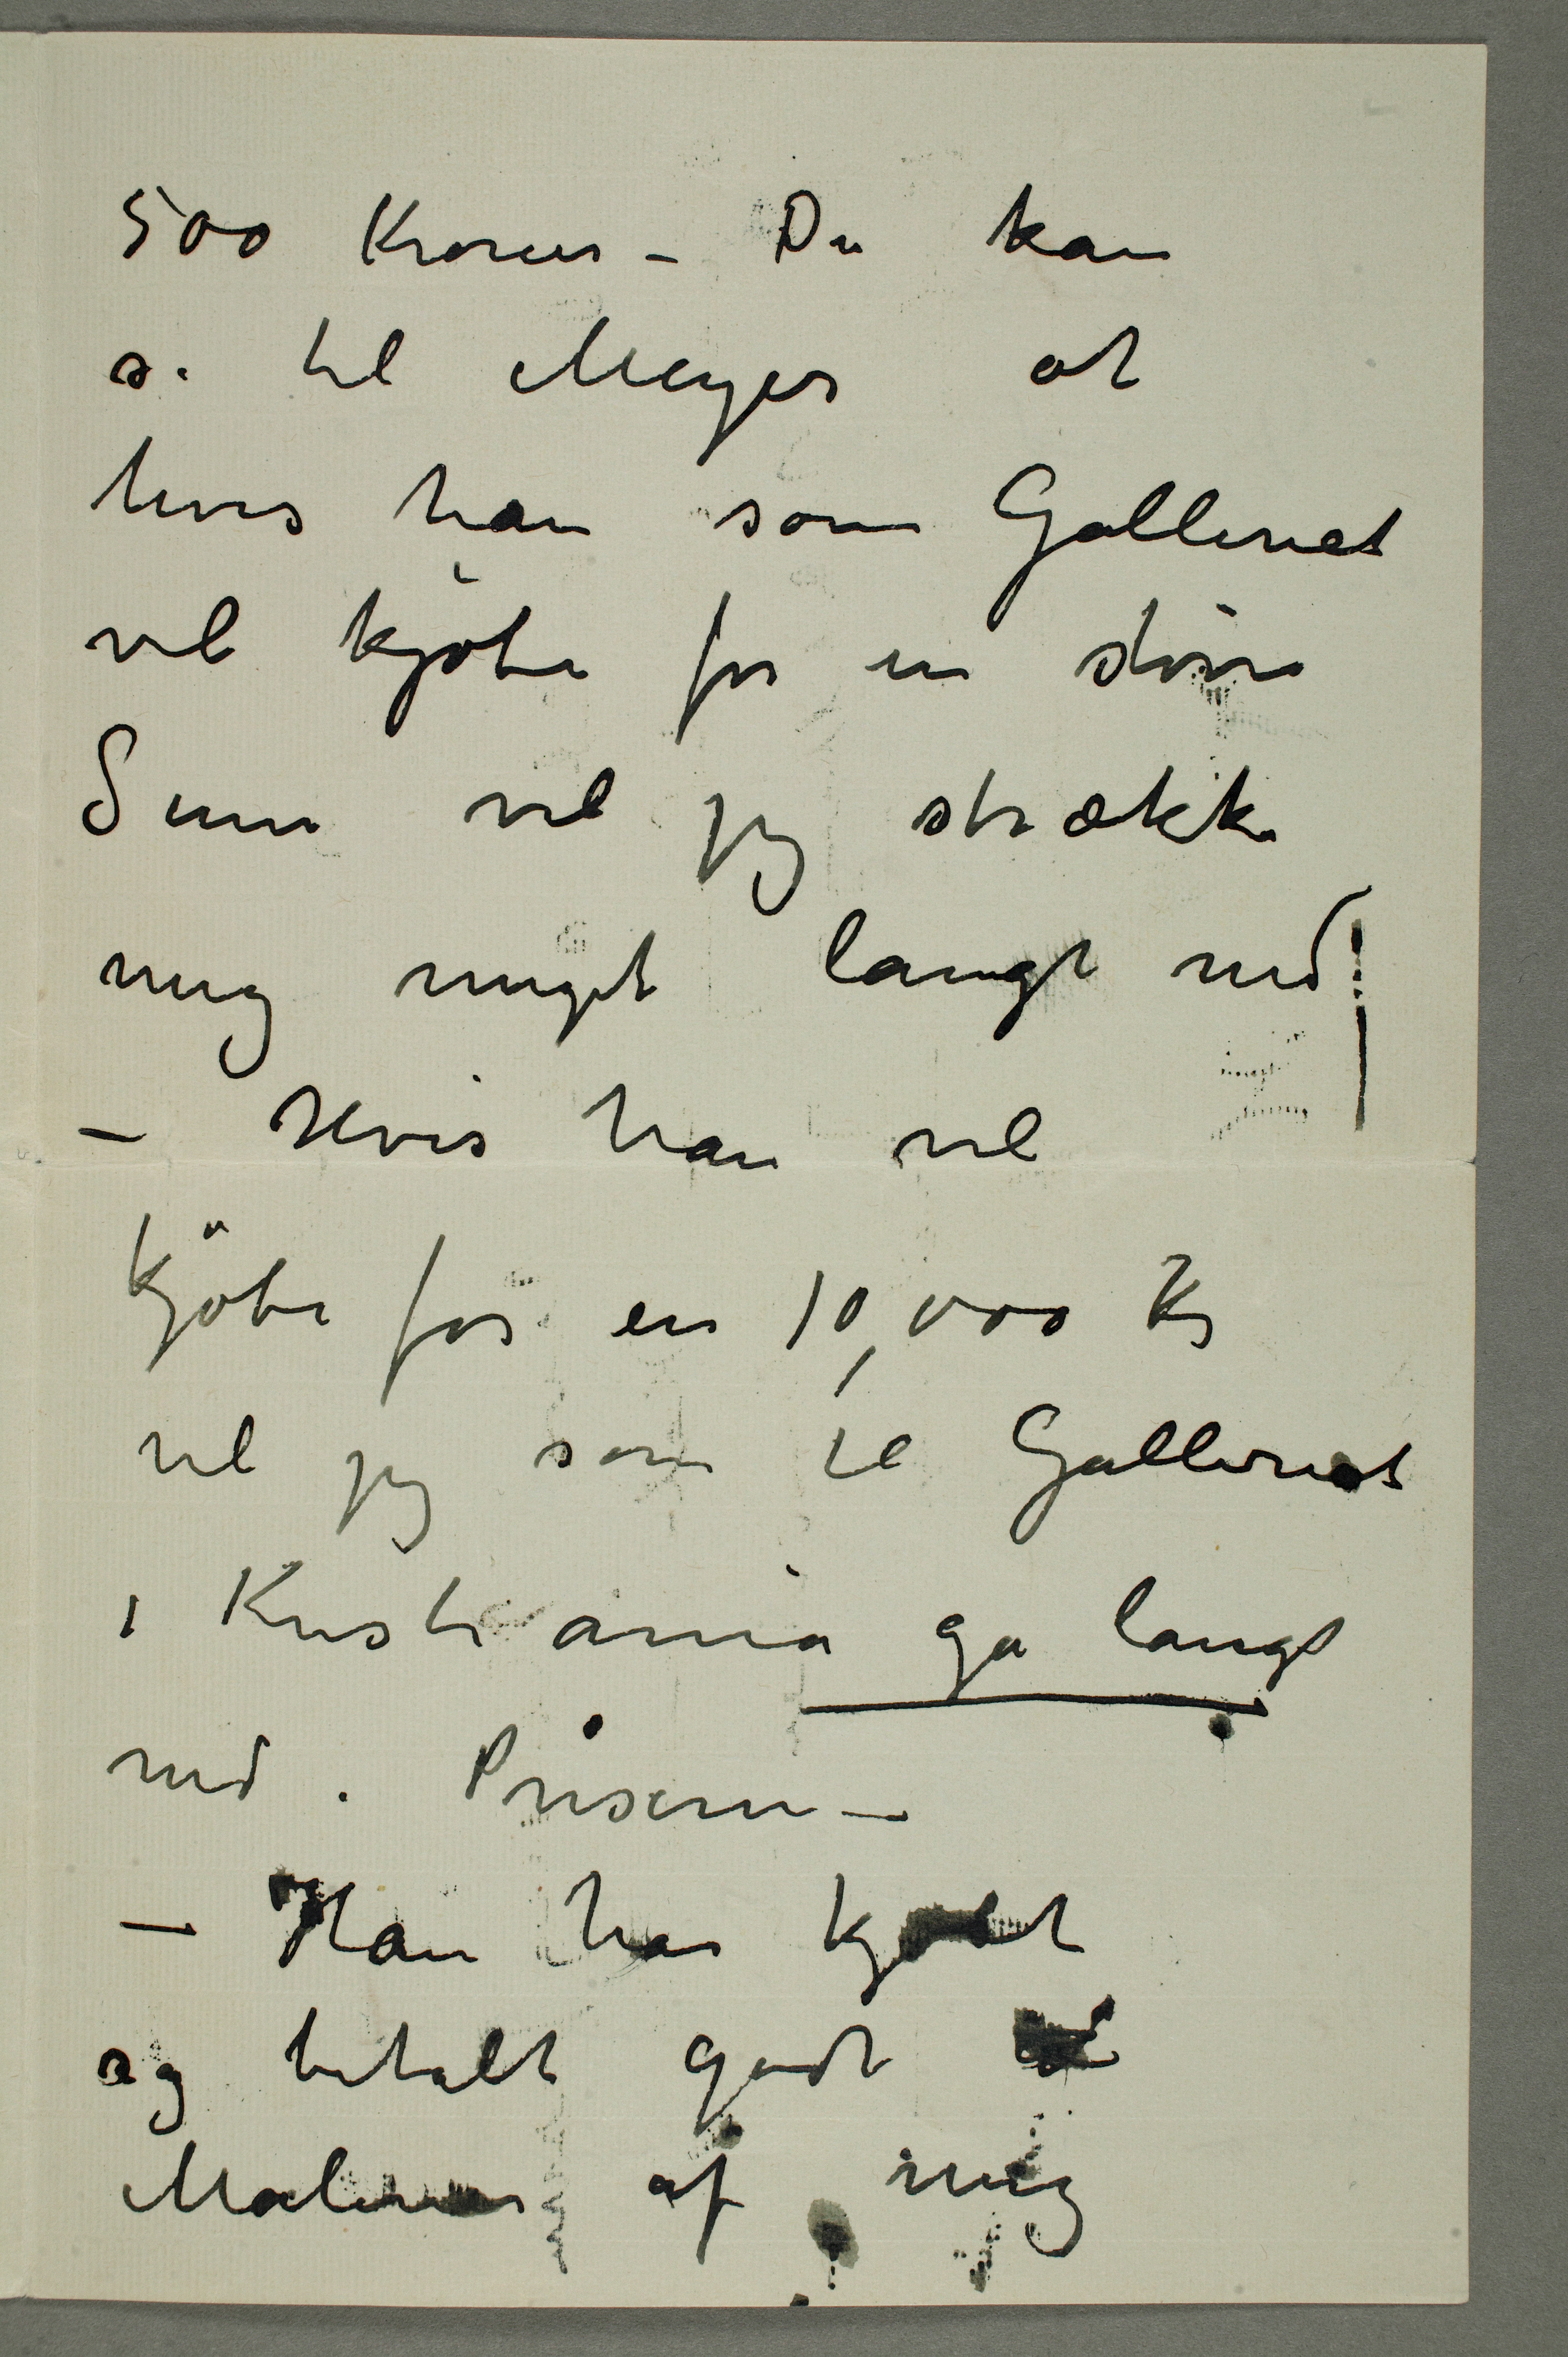 500 Kroner – Du kan
si til Meyer at
hvis han som Galleriet
vil kjöbe for en större
Sum vil jeg strække
mig meget langt ned!
– Hvis han vil
kjöbe for en 10,000 Kr
vil jeg som til Galleriet
i Kristiania gå langt
ned. Prisern –
– Han har kjøbt
og betalt godt
Malerier af mig